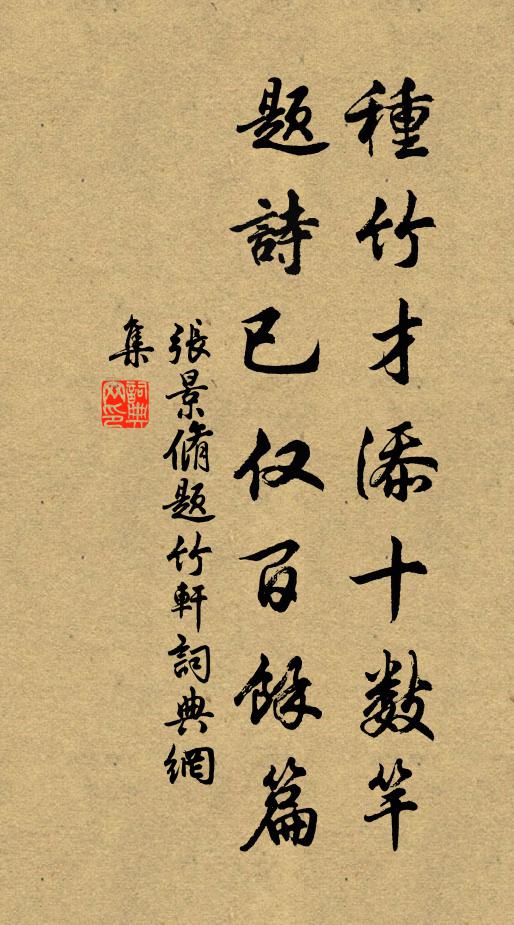 種竹才添十数竿
題詩已仅百餘篇
張景脩題竹軒詞典網
集
詞典網印